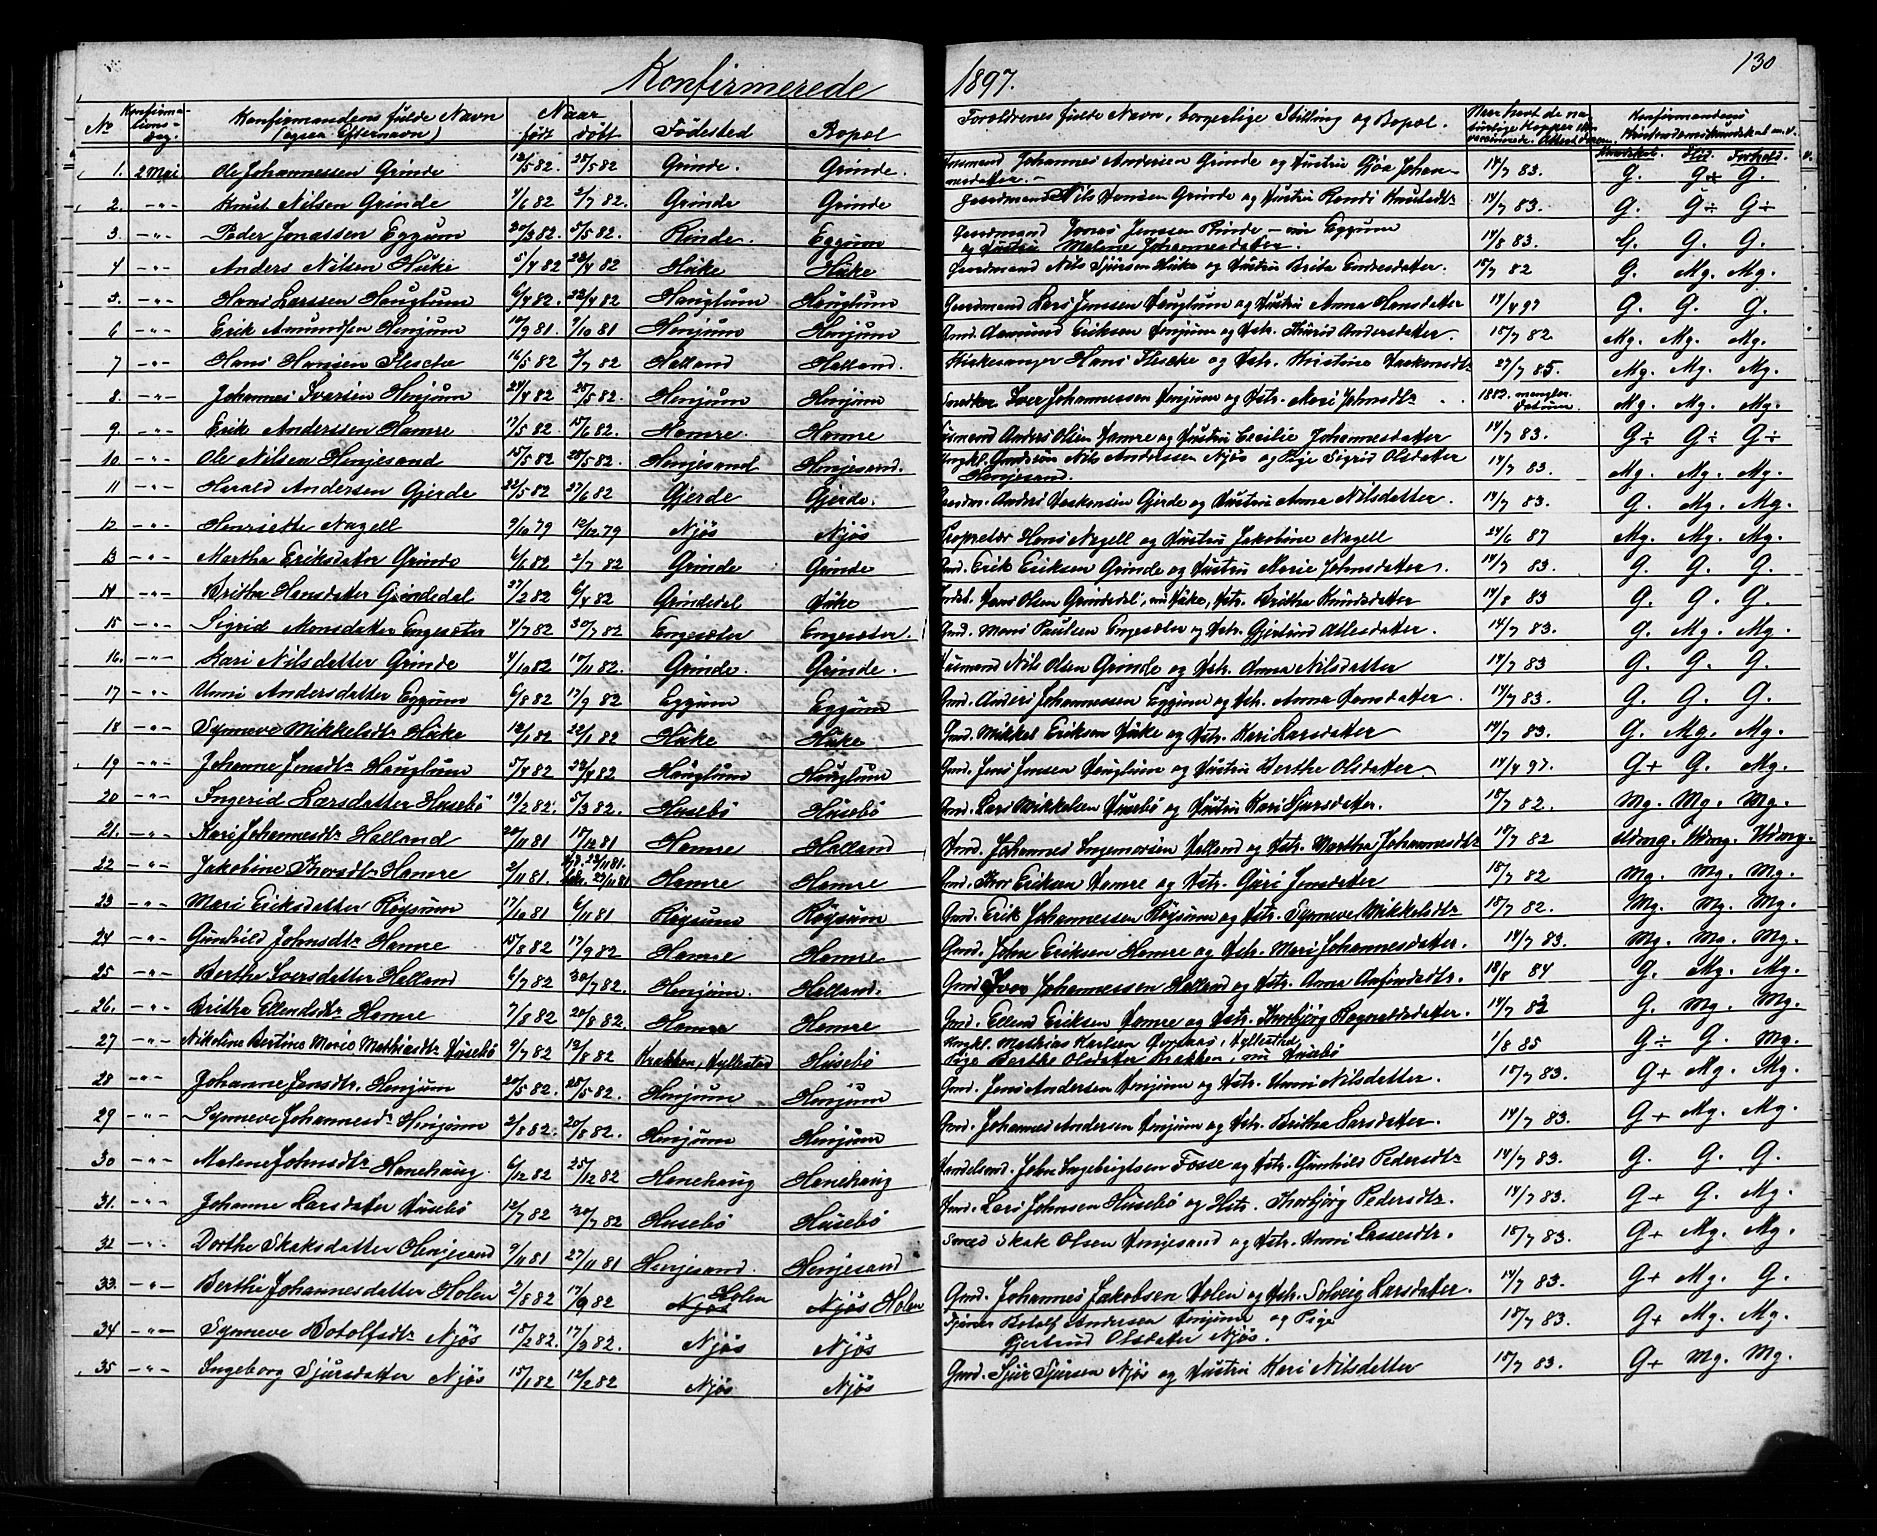 130
Konfirmerede 1897.
No Konfirma-tions-dag. Konfirmandens fulde Navn (ogsaa Efternavn) Naar født døbt Fødested Bopæl Forældrenes fulde Navn, borgerlige Stilling og Bopæl. Konfirmandens Kristendomskundskab m. v. Kundskab. Flid. Forhold.
1. 2 Mai. Ole Johannessen Grinde 12/5 82 28/5 82 Grinde. Grinde. Husmand Johannes Andersen Grinde og Hustru Gjøa Johan-nesdatter. 14/7 83. G. G+ G.
2. -"- Knut Nilsen Grinde 4/6 82 2/7 82. Grinde Grinde Gaardmand Nils Hansen Grinde og Hustru Randi Knutsdtr 14/7 83. G. G÷ G÷
3. -"- Peder Jonassen Eggum 20/3 82. 5/5 82. Rinde. Eggum Gaardmand Jonas Jenssen Rinde - nu Eggum
og Hustru Malene Johannesdatter. 14/8 83. G. G. G.
4 -"- Anders Nilsen Húke 5/4 82 23/4 82 Húke Húke Gaardmand Nils Sjursen Húke og Hustru Brita Endresdatter. 18/7 82 G. Mg. Mg.
5. -"- Hans Larssen Hauglum 6/4 82. 22/4 82 Hauglum Hauglum Gaardmand Lars Jenssen Hauglum og Hustru Anna Hansdatter 14/4 97 G. G. G.
6 -"- Erik Amundsen Henjum 10/9 81. 9/10 81 Henjum Henjum Gmd. Aamund Eriksen Henjum og Hstr. Thurid Andersdatter. 18/7 82 Mg. Mg. Mg.
7 -"- Hans Hansen Flesche 16/5 82 2/7 82 Halland Halland. Kirkesanger Hans Flesche og Hstr. Kristine Haakonsdtr 27/7 85. Mg. Mg. Mg.
8. -"- Johannes Iversen Henjum 24/4 82 28/5 82 Henjum Henjum Iver Johannessen Henjum og Hstr. Mari Johnsdtr 1882. mangler datum. Mg. Mg. Mg.
9. -"- Erik Anderssen Hamre 17/5 82 18/6 82. Hamre. Hamre Husmand Anders Olsen Hamre og Hustru Cecilie Johannesdatter 14/7 83. G÷ G÷ G÷
10. -"- Ole Nilsen Henjesand 15/5 82 28/5 82. Henjesand Henjesand. Ungkl. Gmdssøn Nils Anderssen Njøs og Pige Sigrid Olsdatter
Henjesand. 14/7 83. Mg. Mg. Mg.
11 -"- Harald Andersen Gjerde 22/5 82 27/6 82 Gjerde Gjerde. Anders Haakonsen Gjerde og Hustru Anna Nilsdatter. 14/7 83. G. Mg. Mg.
12 -"- Henriette Nagell 9/10 79 12/12 79 Njøs Njøs Proprietær Hans Nagell og Hustru Jakobine Nagell 24/6 87 Mg. Mg. Mg.
13 -"- Martha Eriksdatter Grinde 6/6 82 2/7 82 Grinde Grinde Gmd. Erik Eriksen Grinde og Hustru Marie Johnsdatter. 14/7 83. G. G. G.
14 -"- Britha Hansdatter Grindedal 27/2 82 6/4 82 Grindedal Húke Hans Olsen Grindedal, nu Húke, Hstr. Britha Knudsdatter 14/8 83 G. G. G.
15 -"- Sigrid Monsdatter Engesæter 4/7 82 30/7 82 Engesæter Engesæter. Gmd. Mons Paulsen Engesæter og Hstr. Gjertrud Atlesdatter. 14/7 83. G. Mg. Mg.
16. -"- Kari Nilsdatter Grinde 4/10 82 10/11 82. Grinde. Grinde. Husmand Nils Olsen Grinde og Hstr. Anna Nilsdatter 14/7 83 G. G. G.
17 -"- Unni Andersdatter Eggum 6/8 82 17/9 82 Eggum Eggum Gmd. Anders Johannessen Eggum og Hstr. Anna Hansdatter. 14/7 83. G. G. G.
18 -"- Synneve Mikkelsdtr Húke 12/1 82 22/1 82 Húke Húke Gmd. Mikkel Eriksen Húke og Hstr. Kari Larsdatter 14/7 83. G. Mg. Mg.
19 -"- Johanne Jensdtr Hauglum 5/4 82 23/4 82 Hauglum Hauglum Gmd. Jens Jensen Hauglum og Hustru Berthe Olsdatter. 14/4 97. G+ G. Mg.
20 -"- Ingerid Larsdatter Husebö 19/2 82. 5/3 82. Husebö Husebö Gmd. Lars Mikkelsen Husebö og Hustru Kari Sjursdatter. 18/7 82. Mg. Mg. Mg.
21. -"- Kari Johannesdtr Halland 20/11 81 18/12 81 Hamre Halland Gmd. Johannes Ingemarsen Halland og Hstr. Martha Johannesdtr 18/7 82 Udmg. Udmg. Udmg.
22 -"- Jakobine Thorsdtr Hamre 2/11 81. 23/11 81. Hamre Hamre Gmd. Thor Eriksen Hamre og Hstr. Guri Jensdatter 18/7 82 Mg. Mg. Mg.
23 -"- Mari Eriksdatter Röysum 17/10 81 6/11 81 Röysum Röysum Gmd. Erik Johannessen Röysum og Hstr. Synneve Mikkelsdtr 18/7 82. Mg. Mg. Mg.
24 -"- Gunhild Johnsdtr Hamre 15/8 82 17/9 82 Hamre Hamre Gmd. John Eriksen Hamre og Hstr. Mari Johannesdatter. 14/7 83. Mg. Mg. Mg.
25 -"- Berthe Iversdatter Halland 6/7 82 30/7 82. Henjum. Halland. Gmd. Iver Johannessen Halland og Hstr. Anna Anfindsdtr. 18/8 84 G. Mg. Mg.
26. -"- Britha Ellendsdtr Hamre 7/8 82 20/8 82. Hamre Hamre Gmd. Ellend Eriksen Hamre og Hstr. Thorbjörg Ragnvaldsdatter. 14/7 83 G. Mg. Mg.
27 -"- Nikoline Bertine Marie Mathiasdtr Husebö 9/7 82 12/8 82 Krakken, Hyllestad Husebö Ungkl. Mathias Karlsen , Hyllestad,
Pige Berthe Olsdatter Krakken, nu Husebö 1/8 85 G÷ G. Mg.
28 -"- Johanne Jensdtr. Henjum 20/5 82. 28/5 82. Henjum Henjum Gmd. Jens Andersen Henjum og Hstr. Unni Nilsdatter. 18/7 83. G+ Mg. Mg.
29 -"- Synneve Johannesdtr Henjum 2/8 82. 20/8 82. Henjum Henjum Gmd. Johannes Andersen Henjum og Hstr. Britha Larsdatter. 14/7 83. G+ Mg. Mg.
30 -"- Malene Johnsdtr Hanehaug. 6/12 82 25/12 82 Hanehaug Hanehaug Handelsmd. John Ingebrigtsen Fosse og Hstr. Gunhild Pedersdtr 14/7 83. G. G. G.
31. -"- Johanne Larsdatter Husebö 12/7 82 30/7 82 Husebö Husebö Gmd. Lars Johnsen Husebö og Hstr. Thorbjörg Pedersdtr. 14/7 83. G+ G. Mg.
32 -"- Dorthe Skaksdatter Henjesand 9/11 81 27/11 81 Henjesand. Henjesand Smed Skak Olsen Henjesand og Hstr. Unni Lassesdtr. 18/7 83. G+ Mg. Mg.
33. -"- Berthe Johannesdatter Holen 2/8 82 17/9 82 Njøs Holen Njøs Holen Gmd. Johannes Jakobsen Holen og Hstr. Solveig Larsdatter. 14/7 83. G+ Mg. G.
34 -"- Synneve Botolfsdtr Njøs 18/2 82. 17/3 82. Njøs Njøs Tjener Botolf Andersen Henjum og Pige
Gjertrud Olsdatter Njøs. 18/7 83. G+ Mg. Mg.
35 -"- Ingeborg Sjursdatter Njøs 15/1 82 12/2 82 Njøs Njøs Gmd. Sjur Sjursen Njøs og Hustru Kari Nilsdatter 18/7 83. G+ Mg. Mg.